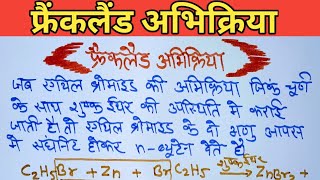 फ्रैंकलैंड अभिक्रिया
फ्रैंकलैंड अभिक्रिया
जब एथिल ब्रोमाइड की अभिक्रिया जिंक चूर्ण
के साथ शुष्क ईथर की उपस्थिति में कराई
जाती है। तो एथिल ब्रोमाइड के दो अणु आपस
में संघनित होकर n-ब्यूटेन देते हैं।
शुष्क ईथर
C₂H₅Br + Zn + BrC₂H₅ → ZnBr₂ +